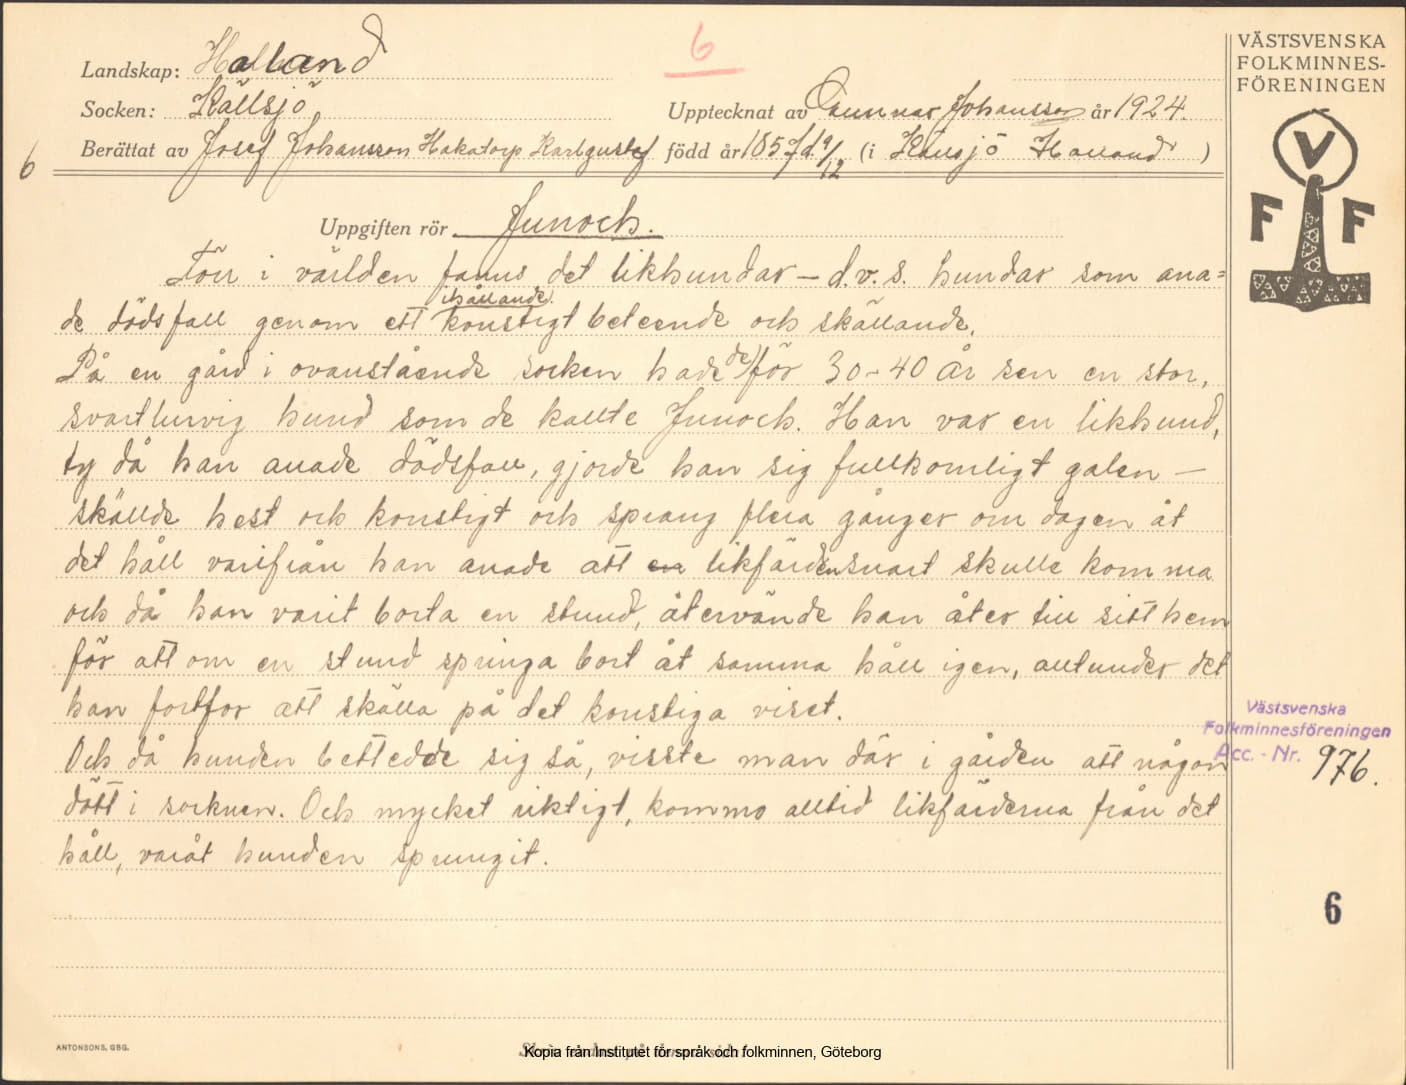 6
VÄSTSVENSKA
FOLKMINNES-
FÖRENINGEN
Landskap: Halland
Socken: Källsjö
Upptecknat av Gunnar Johansson år 1924.
6
Berättat av Josef Johansson Hakatorp Karlgustaf född år 1857 d. 9/12 (i Källsjö Halland)
V
F F
Uppgiften rör Junoch.
Förr i världen fanns det likhundar – d.v.s. hundar som ana=
ihållande
de dödsfall genom ett konstigt beteende och skällande.
På en gård i ovanstående socken hade de) för 30-40 år sen en stor,
svartlurvig hund som de kallte Junoch. Han var en likhund,
ty då han anade dödsfall, gjorde han sig fullkomligt galen –
skällde hest och konstigt och sprang flera gånger om dagen åt
det håll varifrån han anade att en likfärden snart skulle komma
och då han varit borta en stund, återvände han åter till sitt hem
för att om en stund springa bort åt samma håll igen, alltunder det
han fortfor att skälla på det konstiga viset.
Och då hunden bettedde sig så, visste man där i gården att någon
dött i socknen. Och mycket riktigt, kommo alltid likfärderna från det
håll, varåt hunden sprungit.
Västsvenska
Folkminnesföreningen
Acc. - Nr. 976.
6
ANTONSONS, GBG.
Kopia från Institutet för språk och folkminnen, Göteborg